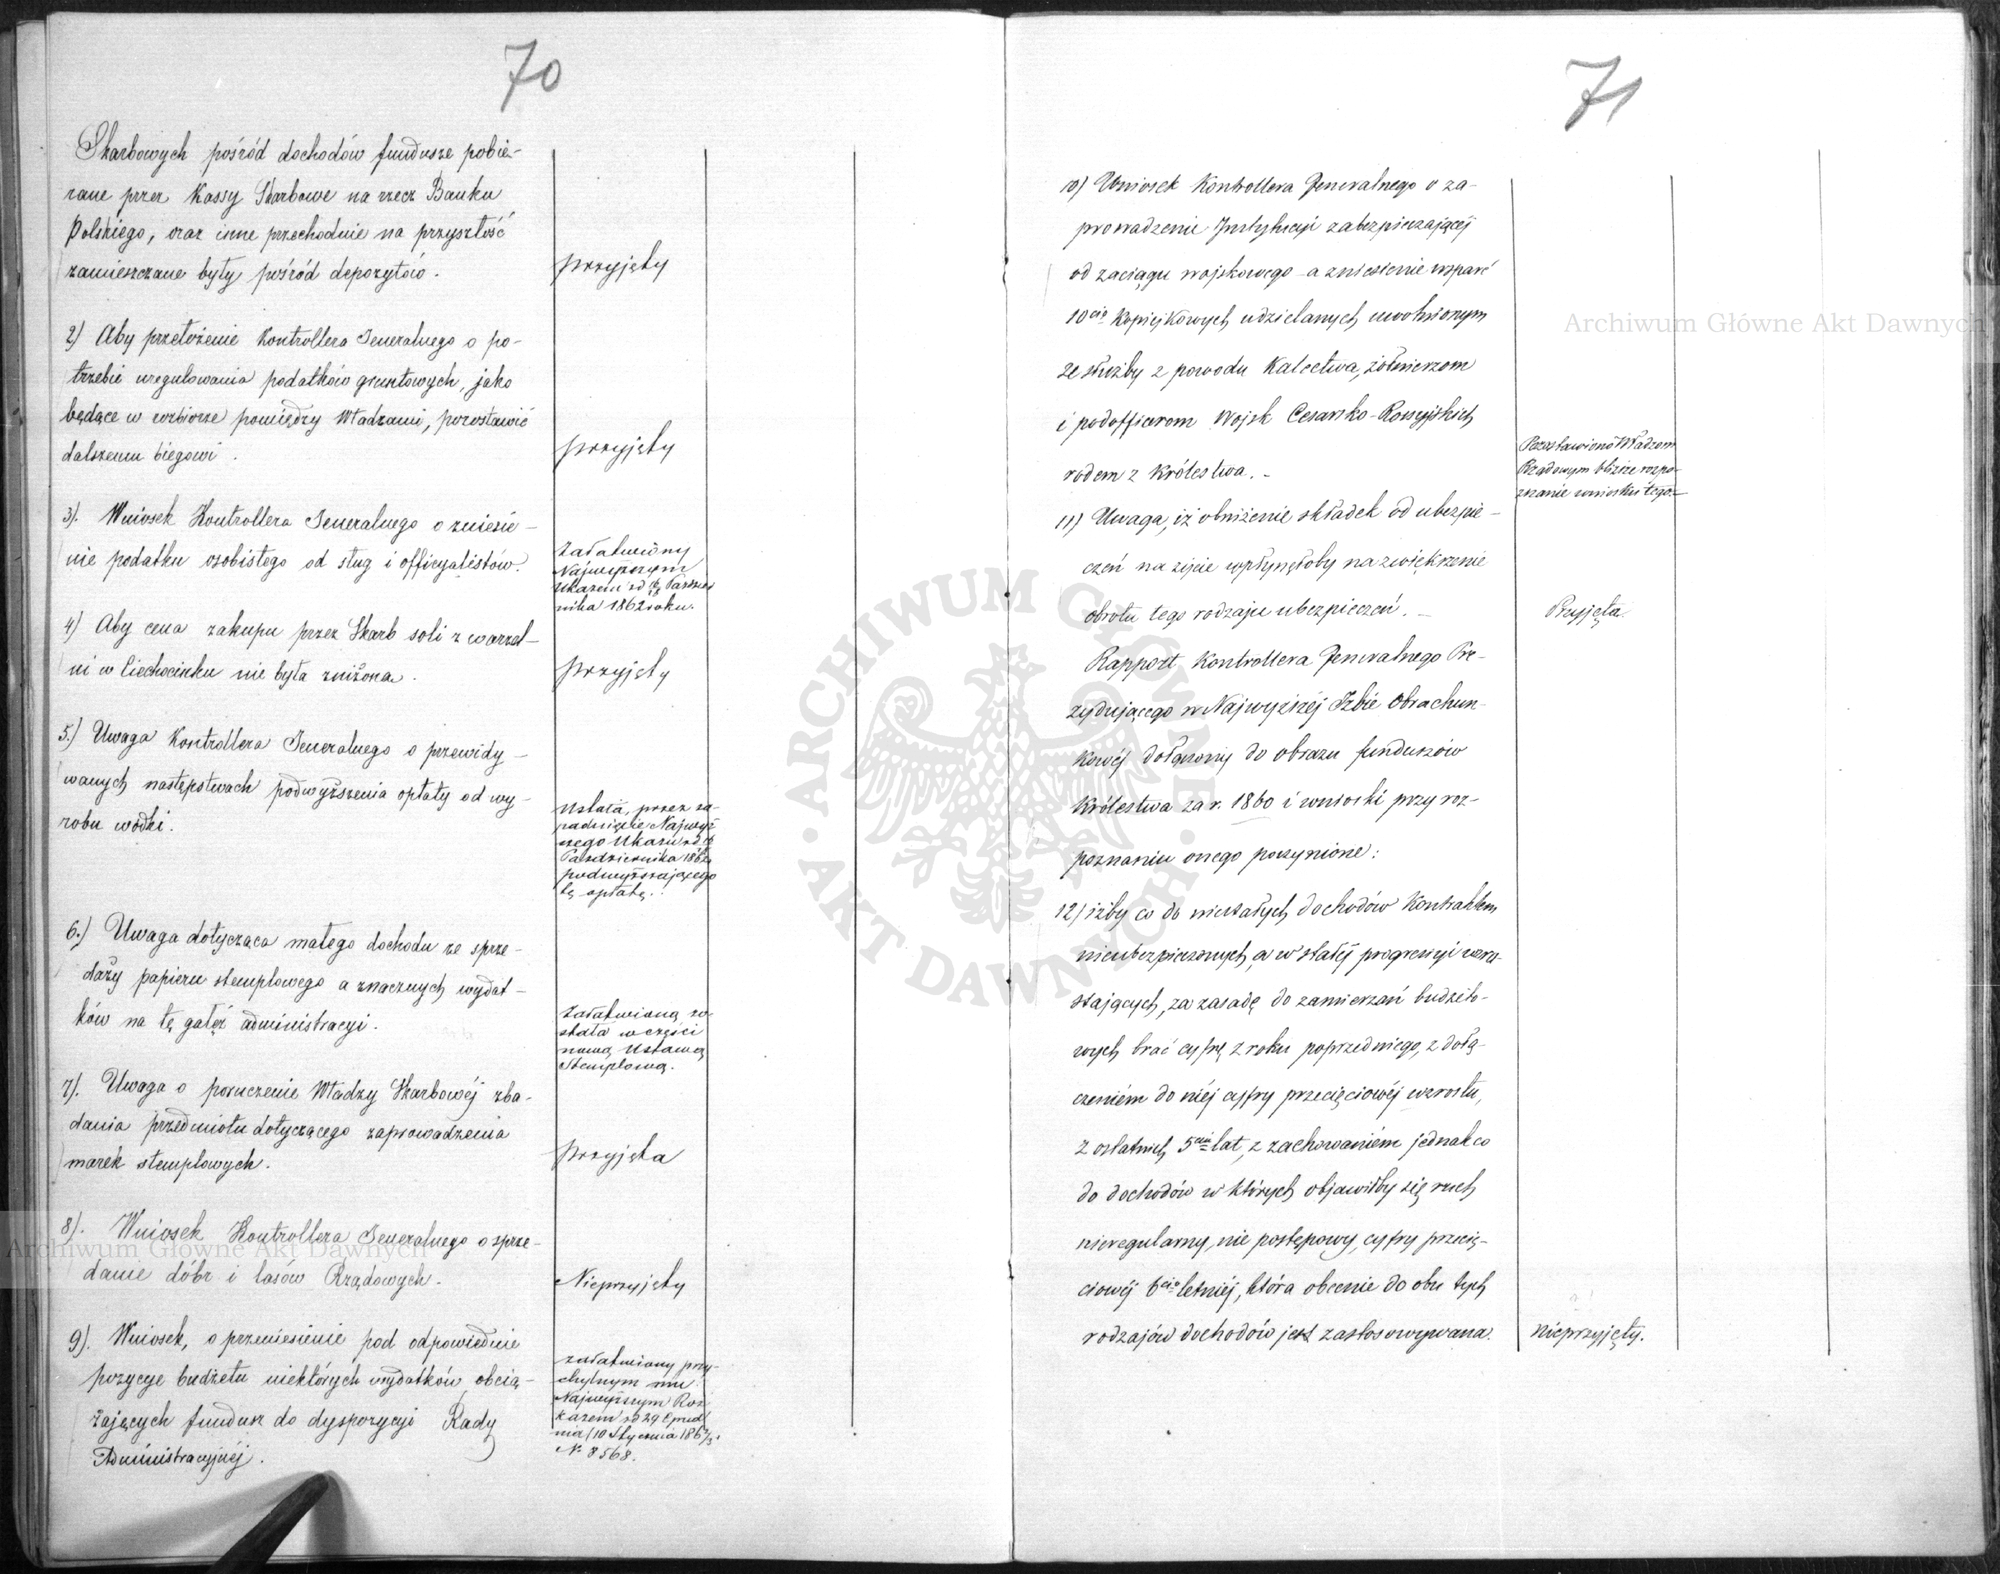 70
Skarbowych pośród dochodów fundusze pobie-
rane przez Kassy Skarbowe na rzecz Banku
Polskiego, oraz inne przechodnie na przyszłość
zamieszczane były pośród depozytów.
przyjęty
2) Aby przełożenie Kontrollera Jeneralnego o po-
trzebie uregulowania podatków gruntowych, jako
będące w rozbiorze pomiędzy Władzami, pozostawić
dalszemu biegowi.
przyjęty
3). Wniosek Kontrollera Jeneralnego o zniesie-
nie podatku osobistego od sług i officyalistów.
załatwiony
Najwyższym
Ukazem z d. Paździer
nika 1862 roku.
4) Aby cena zakupu przez Skarb soli z warzel-
ni w Ciechocinku nie była zniżona.
przyjęty
5.) Uwaga Kontrollera Jeneralnego o przewidy-
wanych następstwach podwyższenia opłaty od wy-
robu wódki.
Ustała, przez za-
padnięcie Najwyż
szego Ukazu z d.
Października 1862
podwyższającego
tę opłatę.
6.) Uwaga dotycząca małego dochodu ze sprze-
daży papieru stemplowego a znacznych wydat-
ków na tę gałęź administracyi.
Załatwioną zo-
stała w części
nową Ustawą
Stemplową.
7). Uwaga o poruczenie Władzy Skarbowéj zba-
dania przedmiotu dotyczącego zaprowadzenia
marek stemplowych.
przyjęta
8). Wniosek Kontrollera Jeneralnego o sprze-
danie dóbr i lasów Rządowych.
Nieprzyjęty
9). Wniosek, o przeniesienie pod odpowiednie
pozycye budżetu niektórych wydatków, obcią-
żających fundusz do dyspozycyi Rady
Administracyjnéj.
załatwiony przy-
chylnym mu
Najwyższym Roz
kazem z d 29 Grud
nia (10 Stycznia 186 2/3
N. 8568.
71
10) Wniosek Kontrollera Jeneralnego o za-
prowadzenie Instytucyi zabezpieczającéj
od zaciągu wojskowego a zniesienie wsparć
10cio Kopiejkowych udzielanych uwolnionym
ze służby z powodu Kalectwa, żołnierzom
i podofficerom Wojsk Cesarsko-Rossyjskich
rodem z Królestwa.
Pozostawiono Władzom
Rządowym bliższe rozpo-
znanie wniosku tego.
11) Uwaga, iż obniżenie składek od ubezpie-
czeń na życie wpłynęłoby na zwiększenie
obrotu tego rodzaju ubezpieczeń.
Przyjęta.
Rapport Kontrollera Jeneralnego Pre-
zydującego w Najwyższéj Izbie Obrachun-
kowéj dołączony do obrazu funduszów
Królestwa za r. 1860 i wnioski przy roz-
poznaniu onego poczynione:
12) iżby co do niestałych dochodów Kontraktem
nieubezpieczonych, a w stałéj progressyi wzra-
stających, za zasadę do zamierzań budżeto-
wych brać cyfrę z roku poprzedniego, z dołą-
czeniem do niéj cyfry przecięciowéj wzrostu,
z ostatnich 5ciu lat, z zachowaniem jednak co
do dochodów w których objawiłby się ruch
nieregularny, nie postępowy, cyfry przecię-
ciowéj 6cio letniéj, która obecnie do obu tych
rodzajów dochodów jest zastosowywana.
nieprzyjęty.
Archiwum Główne Akt Dawnych
Archiwum Główne Akt Dawnych
ARCHIWUM GŁÓWNE
AKT DAWNYCH